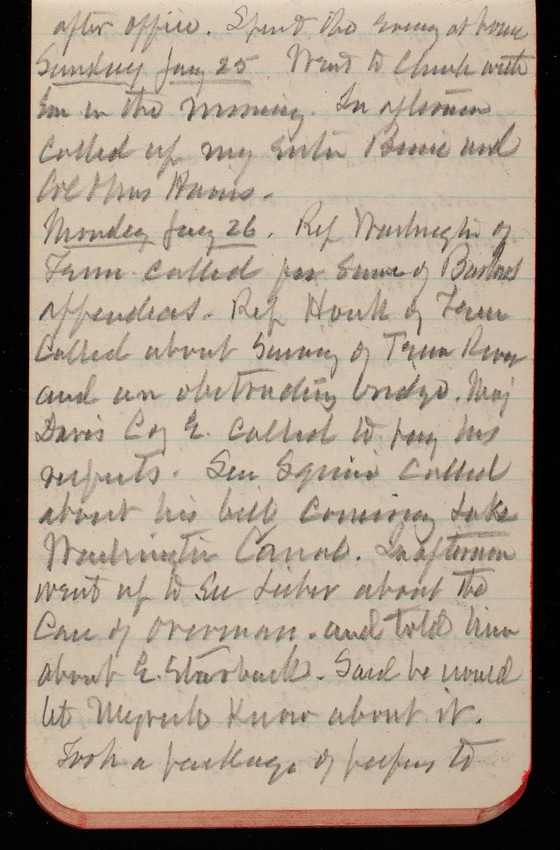 after office. Spent the evening at home
Sunday Jany 25 Went to Church with
Em in the morning. In afternoon
called up my sister Bessie and
Col & Mrs Harris.
Monday Jany 26. Rep Washington of
Tenn called for some of
appendices. Rep Houk of Tenn
called about Survey of Tenn River
and an obstructing bridge. Maj
Davis C of E. called to pay his
respects. Sen Squire called
about his bill Lake
Washington Canal. In afternoon
went up to see about the
Case of Overman. and told him
about E. Starbuck. Said he would
let know about it.
Took a package of papers to